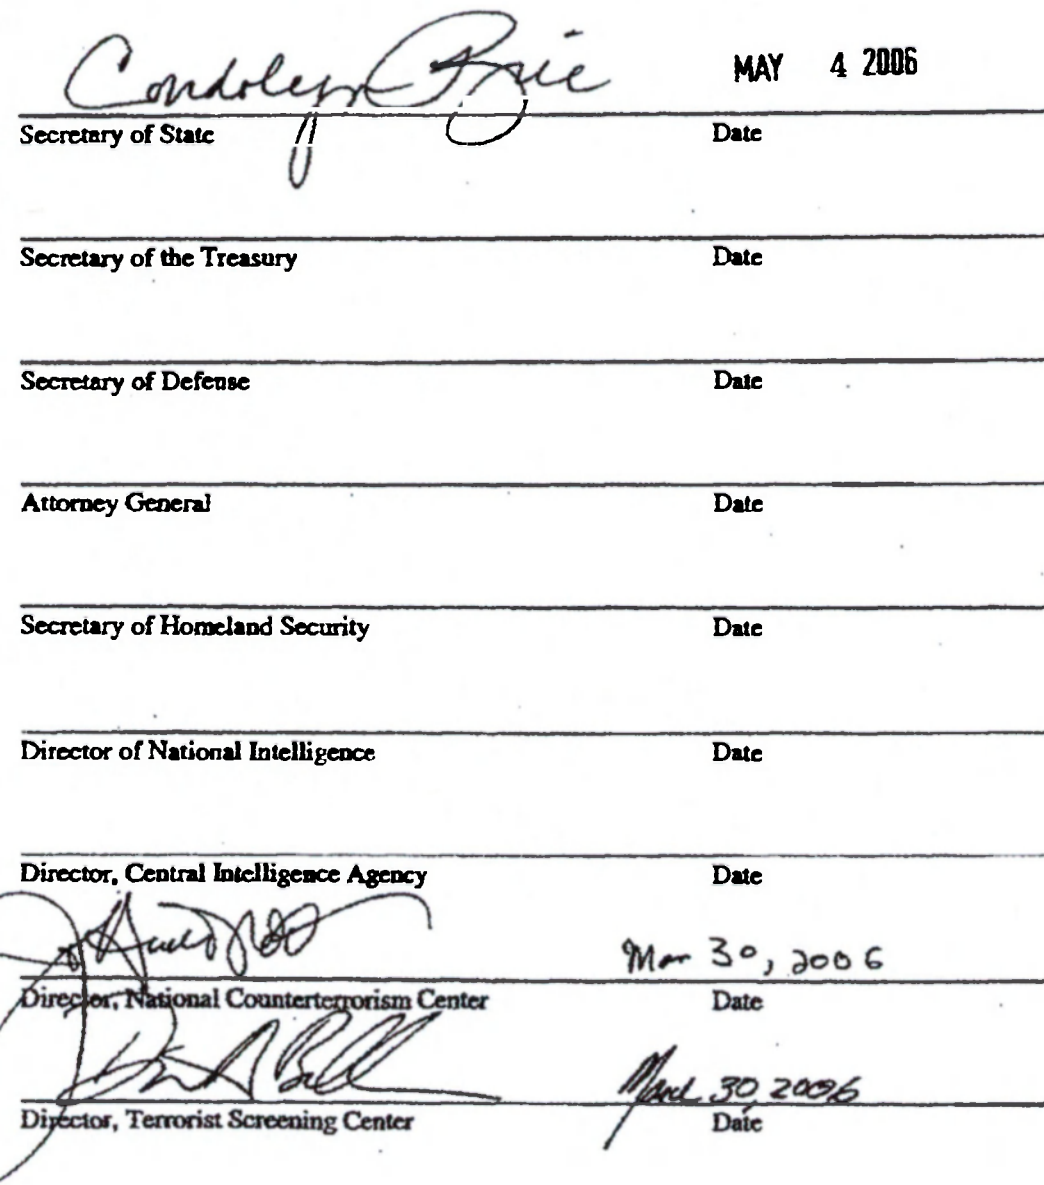 Condoleezza Rice MAY 4 2006
Secretary of State Date
Secretary of the Treasury Date
Secretary of Defense Date
Attorney General Date
Secretary of Homeland Security Date
Director of National Intelligence Date
Director, Central Intelligence Agency Date
Mar 30, 2006
Director, National Counterterrorism Center Date
March 30, 2006
Director, Terrorist Screening Center Date